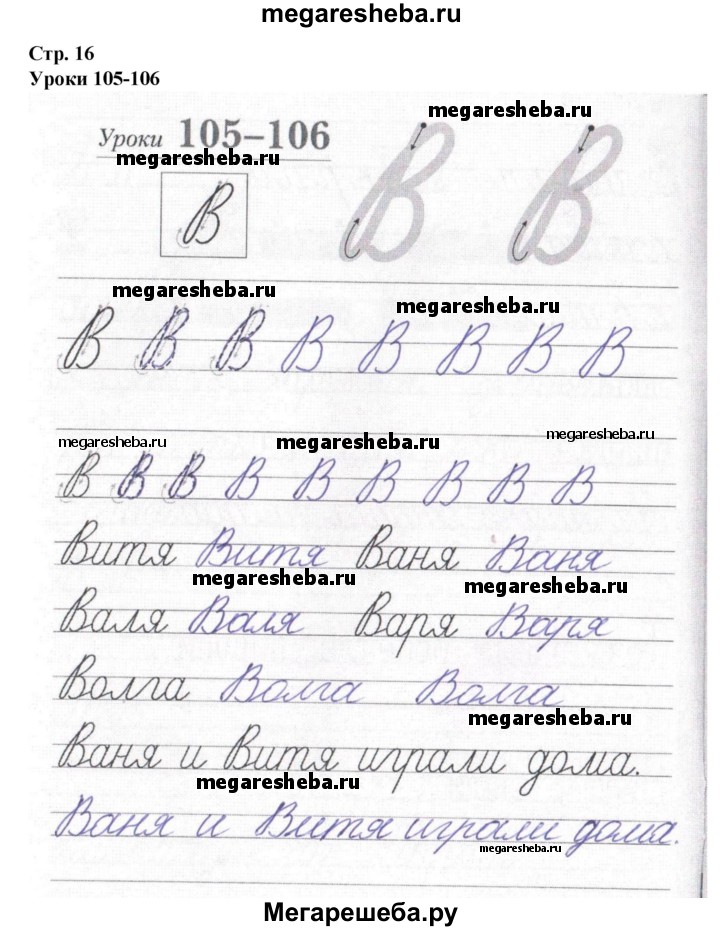 megaresheba.ru
Стр. 16
Уроки 105-106
megaresheba.ru
Уроки 105–106 В В
megaresheba.ru
В
megaresheba.ru megaresheba.ru
В В В В В В В В
megaresheba.ru megaresheba.ru megaresheba.ru
В В В В В В В В В
Витя Витя Ваня Ваня
megaresheba.ru megaresheba.ru
Валя Валя Варя Варя
Волга Волга Волга
megaresheba.ru
Ваня и Витя играли дома.
megaresheba.ru
Ваня и Витя играли дома.
megaresheba.ru
Мегарешеба.ру